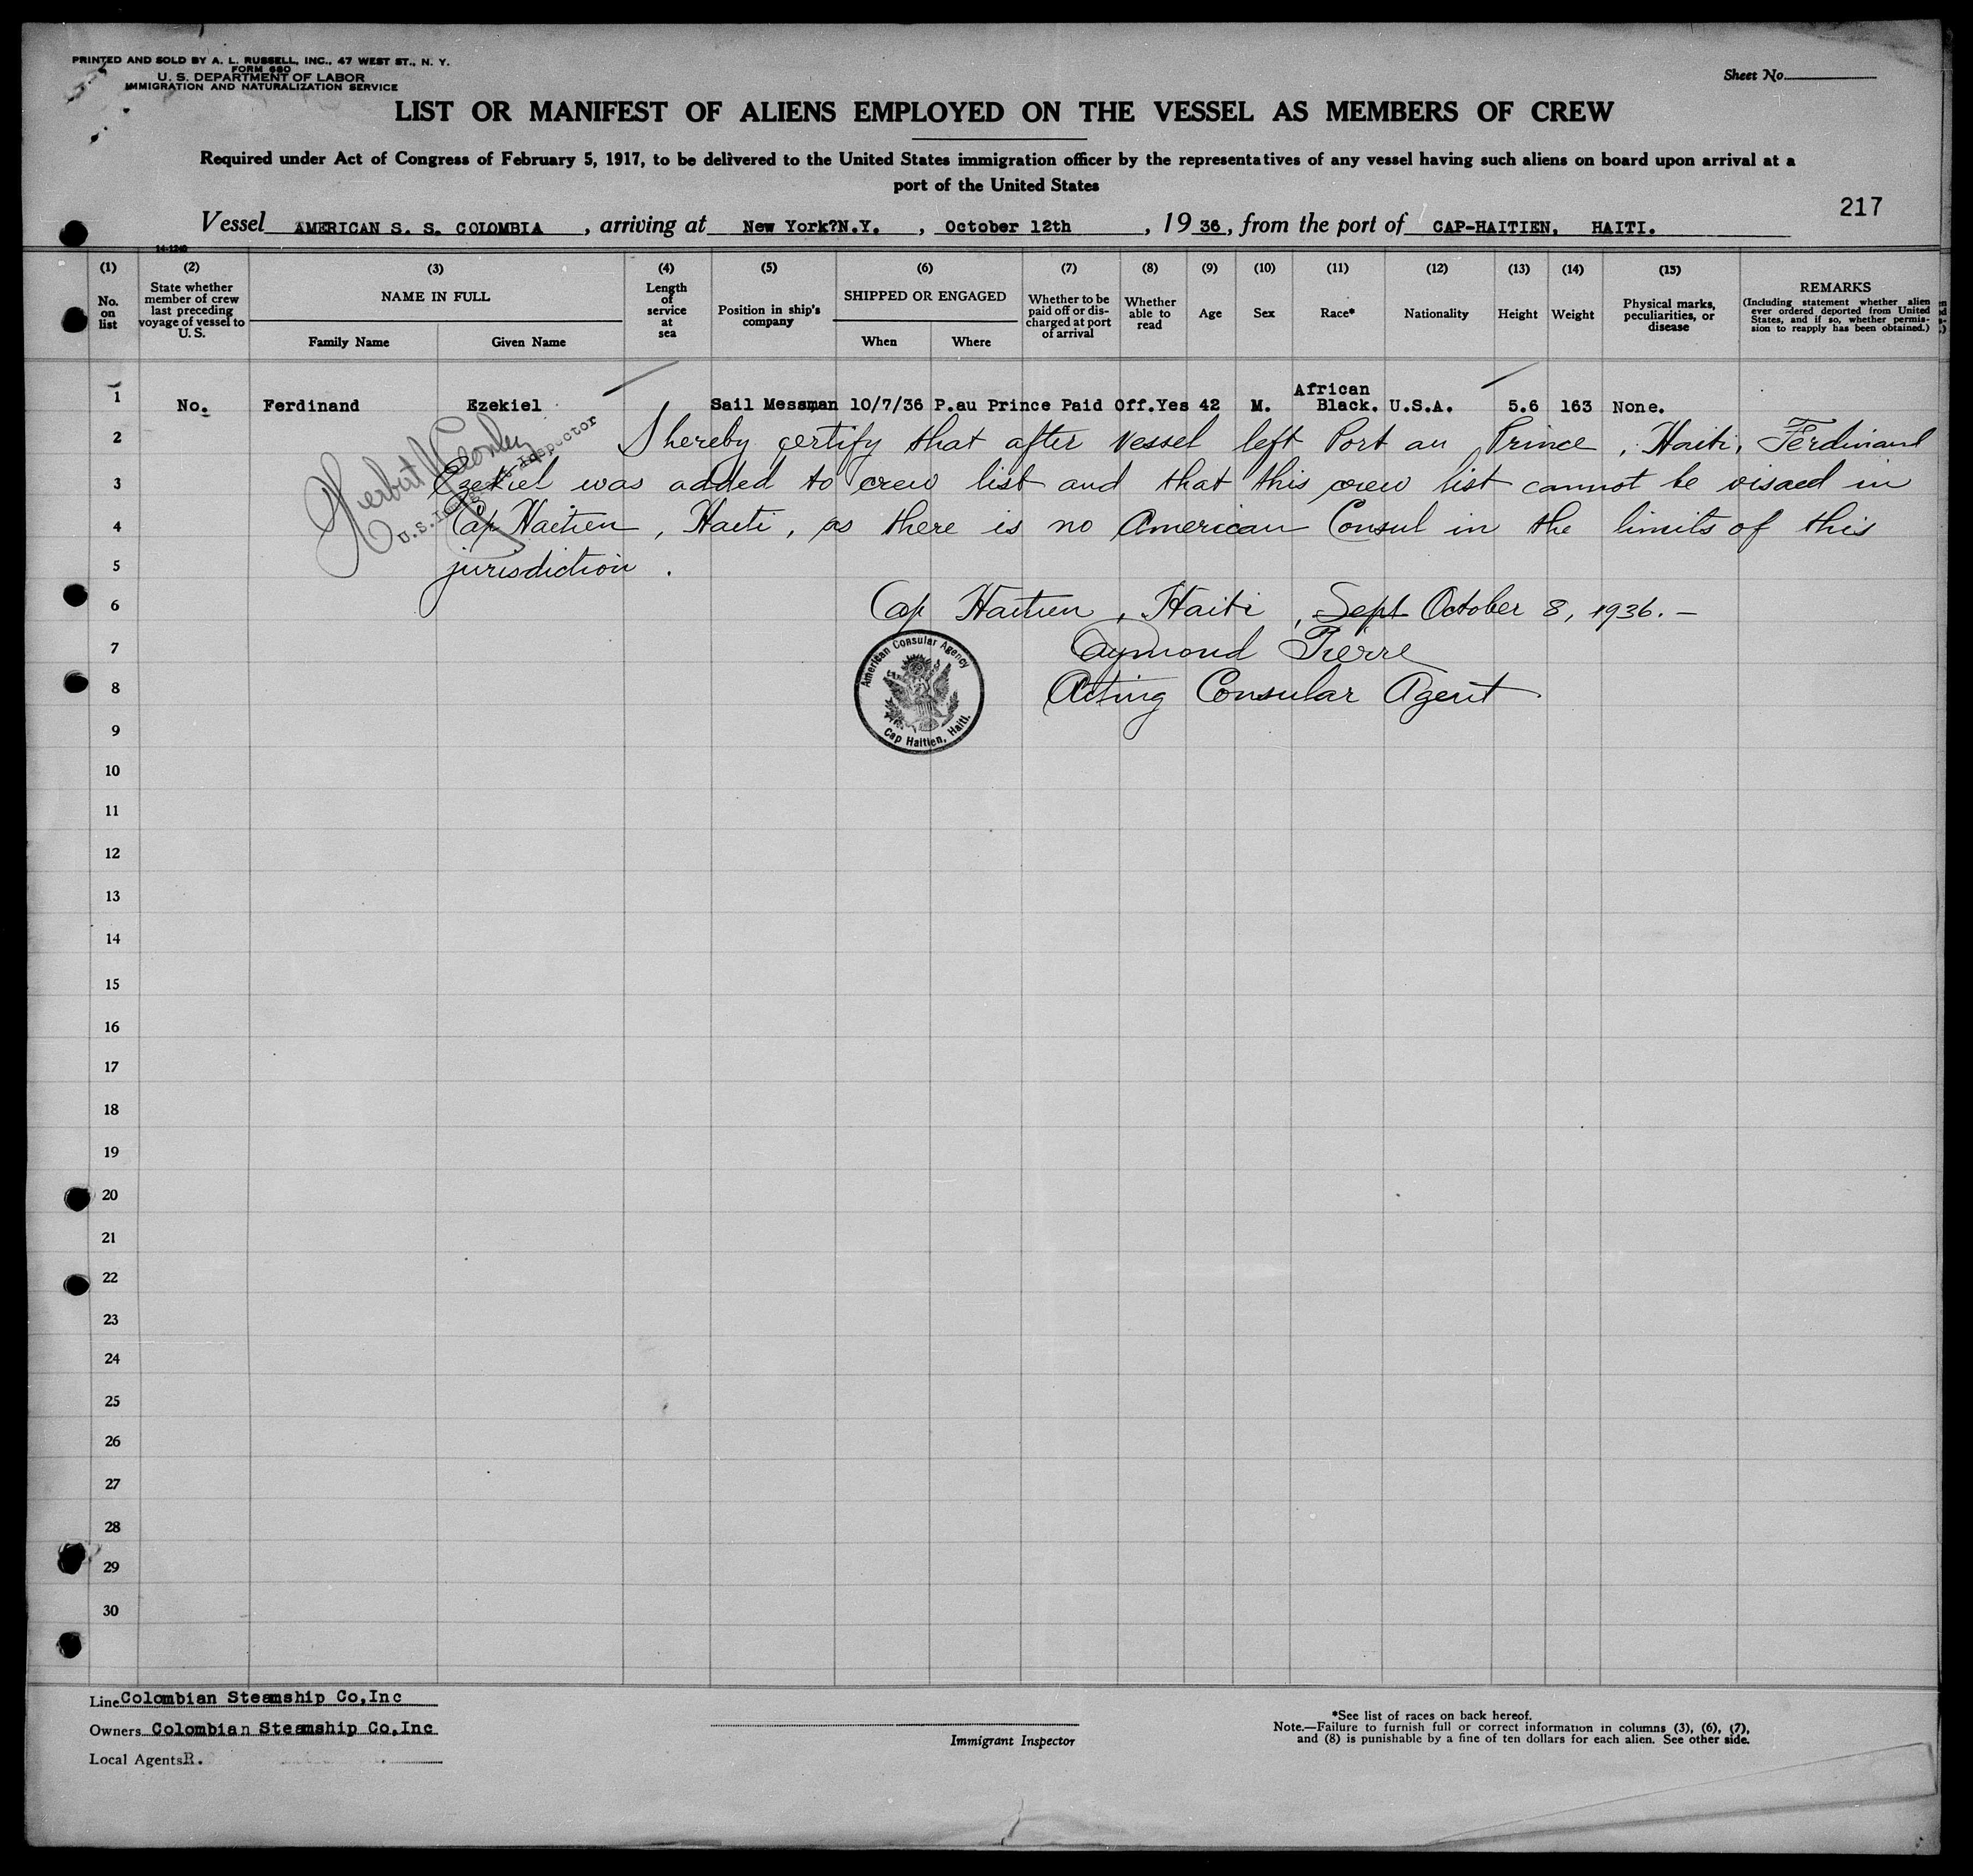 PRINTED AND SOLD BY A. L. RUSSELL, INC., 47 WEST ST., N. Y.
FORM 680
U. S. DEPARTMENT OF LABOR
IMMIGRATION AND NATURALIZATION SERVICE
Sheet No.
LIST OR MANIFEST OF ALIENS EMPLOYED ON THE VESSEL AS MEMBERS OF CREW
Required under Act of Congress of February 5, 1917, to be delivered to the United States immigration officer by the representatives of any vessel having such aliens on board upon arrival at a
port of the United States
217
Vessel AMERICAN S. S. COLOMBIA , arriving at New York?N.Y. , October 12th , 19 36, from the port of CAP-HAITIEN, HAITI.
14-1240
(1) No. on list
(2) State whether member of crew last preceding voyage of vessel to U. S.
(3) NAME IN FULL Family Name Given Name
(4) Length of service at sea
(5) Position in ship's company
(6) SHIPPED OR ENGAGED When Where
(7) Whether to be paid off or discharged at port of arrival
(8) Whether able to read
(9) Age
(10) Sex
(11) Race*
(12) Nationality
(13) Height
(14) Weight
(15) Physical marks, peculiarities, or disease
REMARKS (Including statement whether alien ever ordered deported from United States, and if so, whether permission to reapply has been obtained.)
1 No. Ferdinand Ezekiel Sail Messman 10/7/36 P.au Prince Paid Off. Yes 42 M. African Black. U.S.A. 5.6 163 None.
2 I hereby certify that after vessel left Port au Prince, Haiti, Ferdinand
3 Ezekiel was added to crew list and that this crew list cannot be visaed in
4 Cap Haitien, Haiti, as there is no American Consul in the limits of this
5 jurisdiction.
Herbert
U.S. Inspector
6 Cap Haitien, Haiti, Sept October 8, 1936.—
7 Raymond Pierre
8 Acting Consular Agent
American Consular Agency
Cap Haitien, Haiti.
9
10
11
12
13
14
15
16
17
18
19
20
21
22
23
24
25
26
27
28
29
30
Line Colombian Steamship Co,Inc
Owners Colombian Steamship Co,Inc
Local Agents R.
Immigrant Inspector
*See list of races on back hereof.
Note.—Failure to furnish full or correct information in columns (3), (6), (7),
and (8) is punishable by a fine of ten dollars for each alien. See other side.